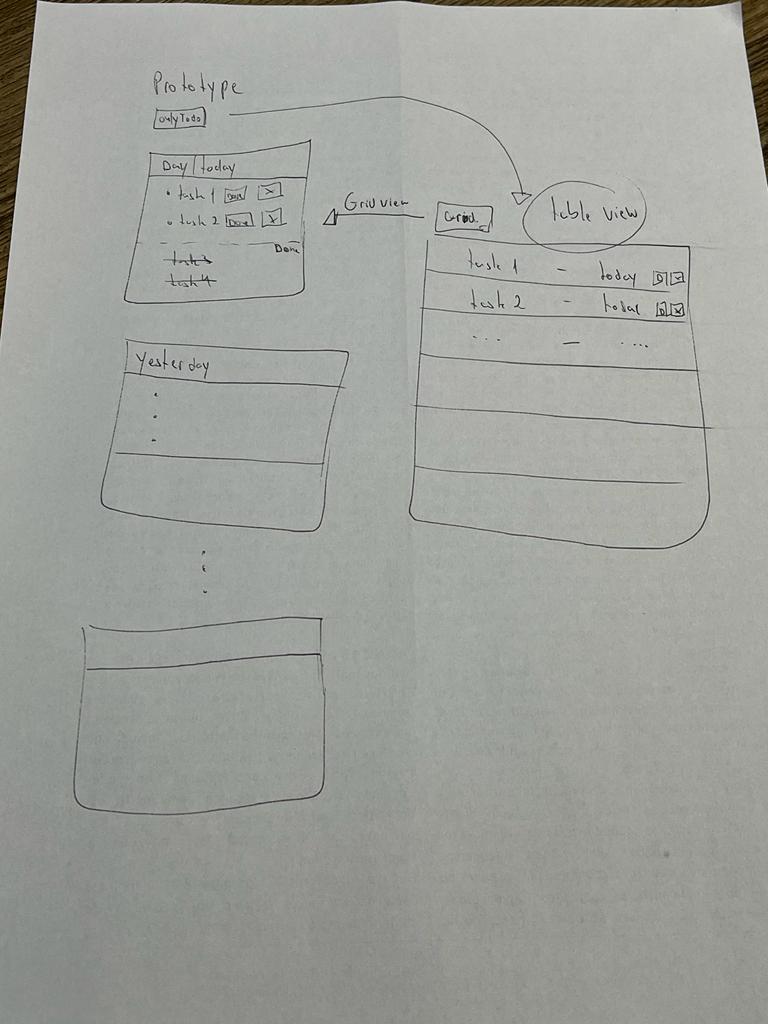 Prototype
only Todo
Day | today
• task 1 Done X
• task 2 Done X
Done
task 3
task 4
Grid view
Grid
table view
task 1 - today D X
task 2 - today D X
... - ....
Yesterday